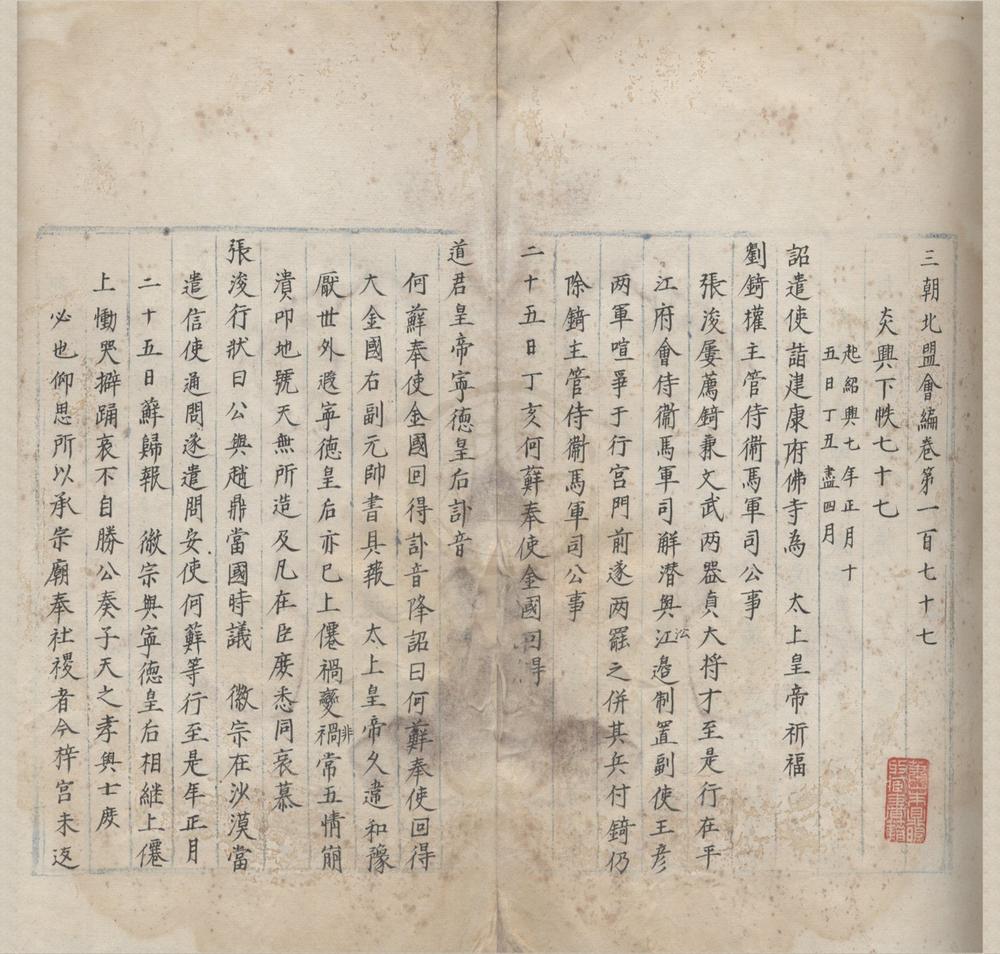 三朝北盟會編卷第一百七十七
炎興下帙七十七
起紹興七年正月十
五日丁丑盡四月
詔遣使詣建康府佛寺為 太上皇帝祈福
劉錡權主管侍衛馬軍司公事
張浚屢薦錡兼文武两器貞大将才至是行在平
江府會侍衛馬軍司解潜與江㳂邉制置副使王彦
两軍喧爭于行宫門前遂两罷之併其兵付錡仍
除錡主管侍衛馬軍司公事
二十五日丁亥何蘚奉使金國回得
道君皇帝寧德皇后訃音
何蘚奉使金國回得訃音降詔曰何蘚奉使回得
大金國右副元帥書具報 太上皇帝乆違和豫
厭世外遐寧德皇后亦已上僊禍變禍非常五情崩
潰叩地號天無所造及凡在臣庶悉同哀慕
張浚行狀曰公與趙鼎當國時議 徽宗在沙漠當
遣信使通問遂遣問安使何蘚等行至是年正月
二十五日蘚歸報 徽宗與寧德皇后相継上僊
上慟哭擗踊哀不自勝公奏子天之孝與士庶
必也仰思所以承宗廟奉社禝者今梓宫未返